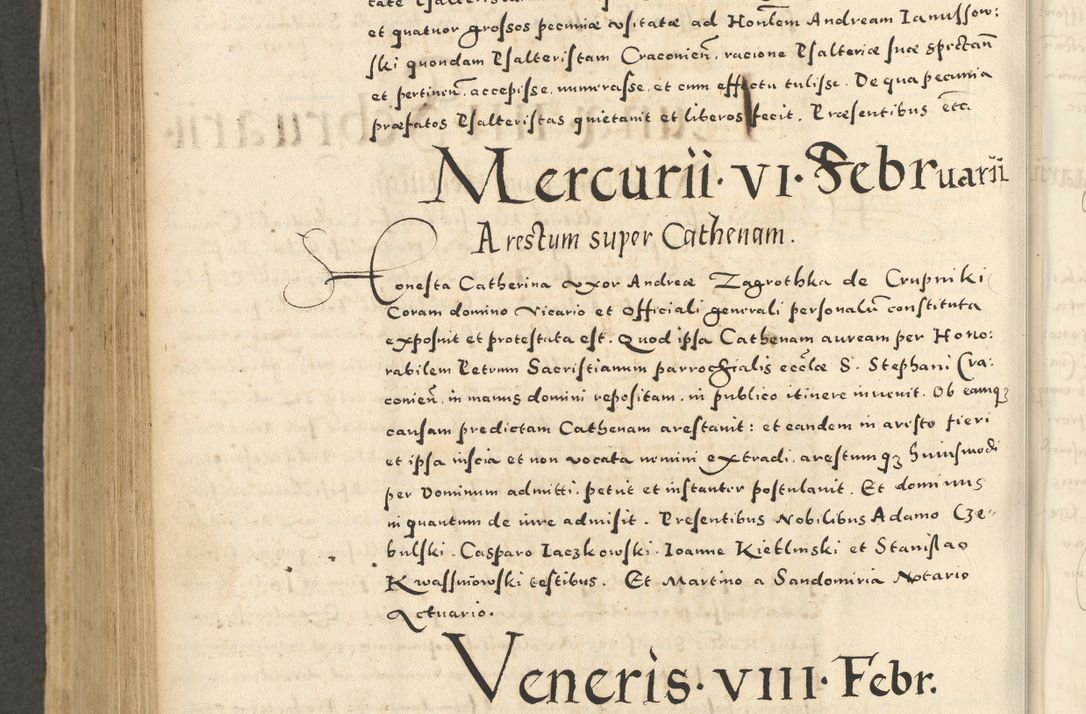 et quatuor grossos pecuniæ usitatæ ad Honlem Andream Ianussow:
ski quondam Psalteristam Craconien̄, racione Psalteriæ suæ spectan̄
et pertinen̄, accepisse, numerasse, et cum effectu tulisse. De qua pecunia
præfatos Psalteristas quietauit et liberos fecit. Præsentibus etc.
Mercurii · VI · Februarii
Arestum super Cathenam.
Honesta Catherina uxor Andreæ Zagrothka de Crupniki
Coram domino Vicario et Officiali generali personalr̄ constituta
exposuit et protestata est. Quod ipsa Cathenam auream per Hono:
rabilem Petrum Sacristianum parrochialis eccłæ S. Stephani Cra:
conien̄, in manus domini repositam, in publico itinere inuenit. Ob eamqȝ
causam predictam Cathenam arestauit: et eandem in aresto fieri
et ipsa inscia et non vocata nemini extradi, arestumqȝ huiusmodi
per Dominum admitti, petiit et instanter postulauit. Et dominus
in quantum de iure admisit. Presentibus Nobilibus Adamo Czę-
bulski. Casparo Iaczkowski. Ioanne Kietlinski et Stanislao
Kwassniowski testibus. Et Martino a Sandomiria Notario
Actuario.
Veneris · VIII · Febr.